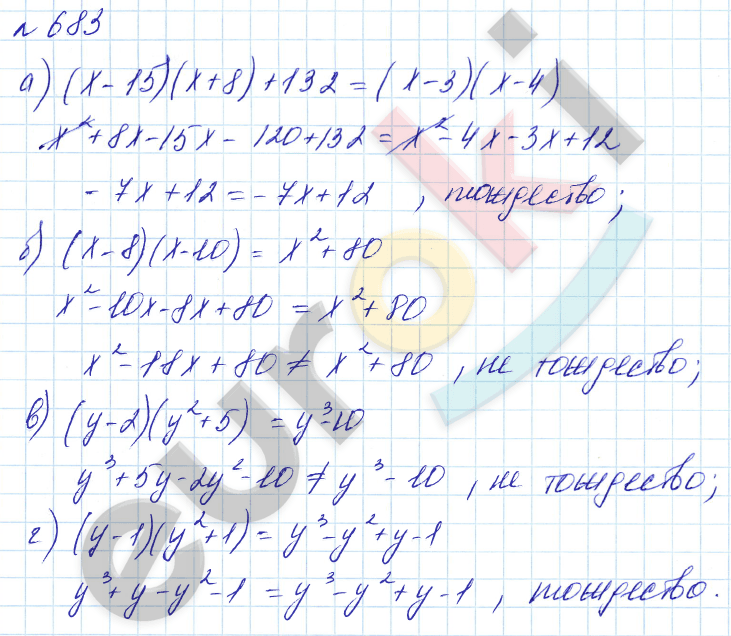 № 683
а) (x - 15)(x + 8) + 132 = (x - 3)(x - 4)
x² + 8x - 15x - 120 + 132 = x² - 4x - 3x + 12
- 7x + 12 = - 7x + 12 , тождество;
б) (x - 8)(x - 10) = x² + 80
x² - 10x - 8x + 80 = x² + 80
x² - 18x + 80 ≠ x² + 80 , не тождество;
в) (y - 2)(y² + 5) = y³ - 10
y³ + 5y - 2y² - 10 ≠ y³ - 10 , не тождество;
г) (y - 1)(y² + 1) = y³ - y² + y - 1
y³ + y - y² - 1 = y³ - y² + y - 1 , тождество.
euroki